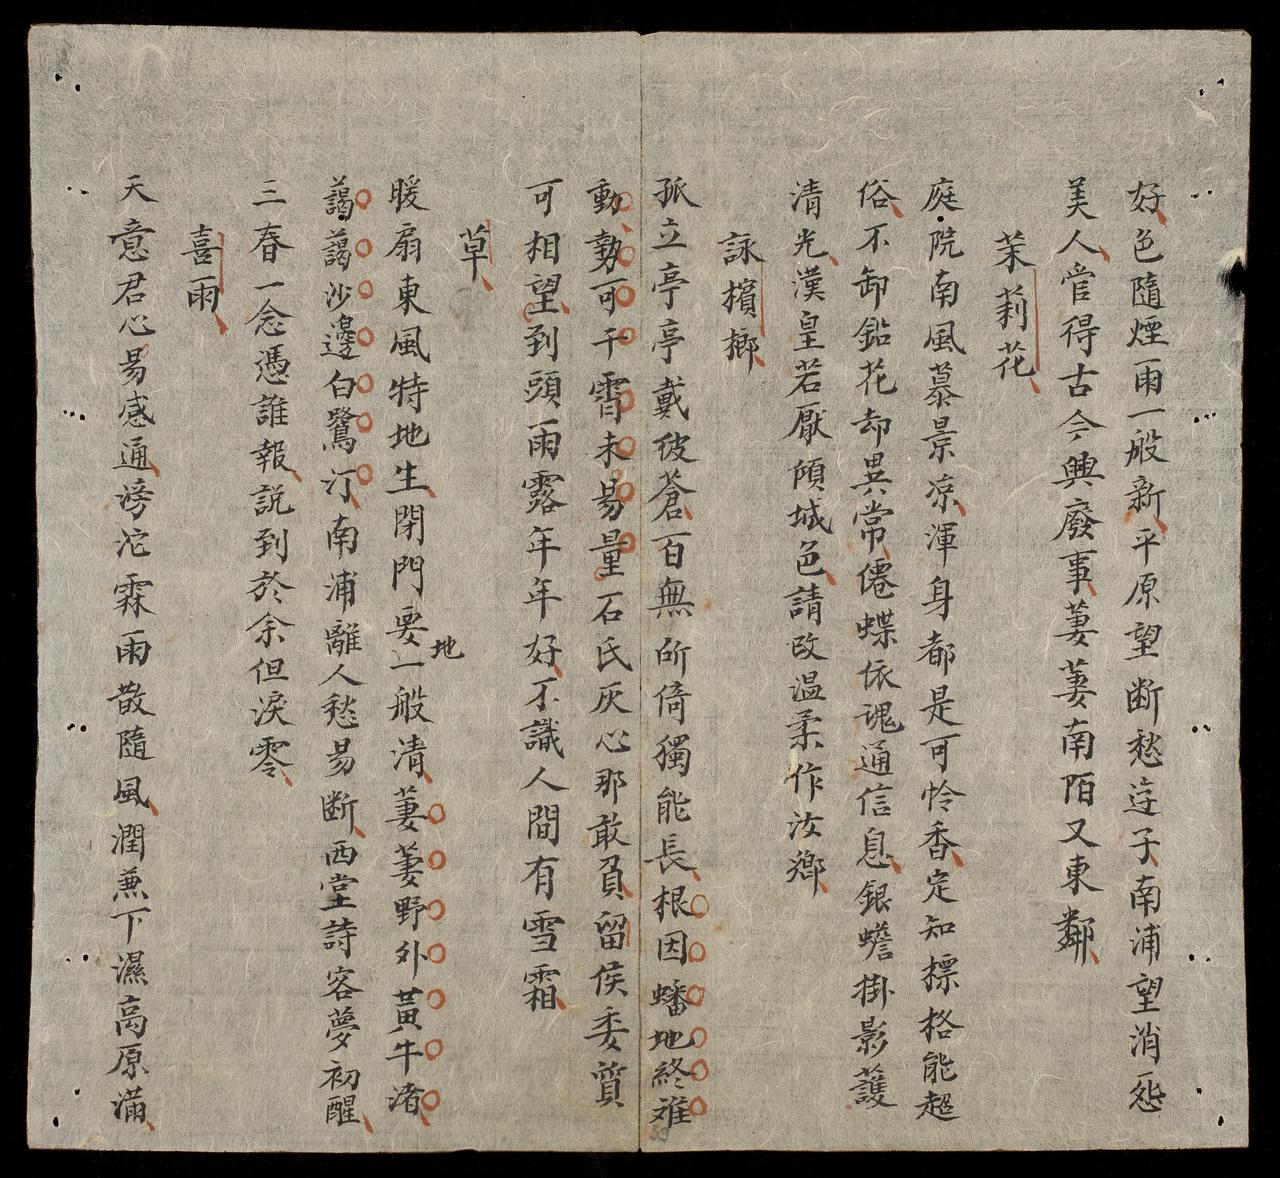 好色隨煙雨一般新平原望断愁迕子南浦望消𠒋
美人管得古今興廢事萋萋南陌又東鄰
茉莉花
庭院南風慕景凉渾身都是可怜香定知標格能超
俗不卸鉛花却異常僊蝶依魂通信息銀蟾掛影護
清光漢皇若厭傾城色請改温柔作汝鄉
詠檳榔
孤立亭亭戴彼蒼百無所倚獨能長根因蟠地終难
動勢可干霄未易量石氏灰心那敢負留侯委質
可相望到頭雨露年年好不識人間有雪霜
草
暖扇東風特地生閉門要一般清萋萋野外黃牛渚
地
藹藹沙邊白鷺汀南浦離人愁易断西堂詩客夢初醒
三春一念憑誰報説到於余但淚零
喜雨
天意君心易感通滂沱霖雨散隨風潤兼下濕高原滿